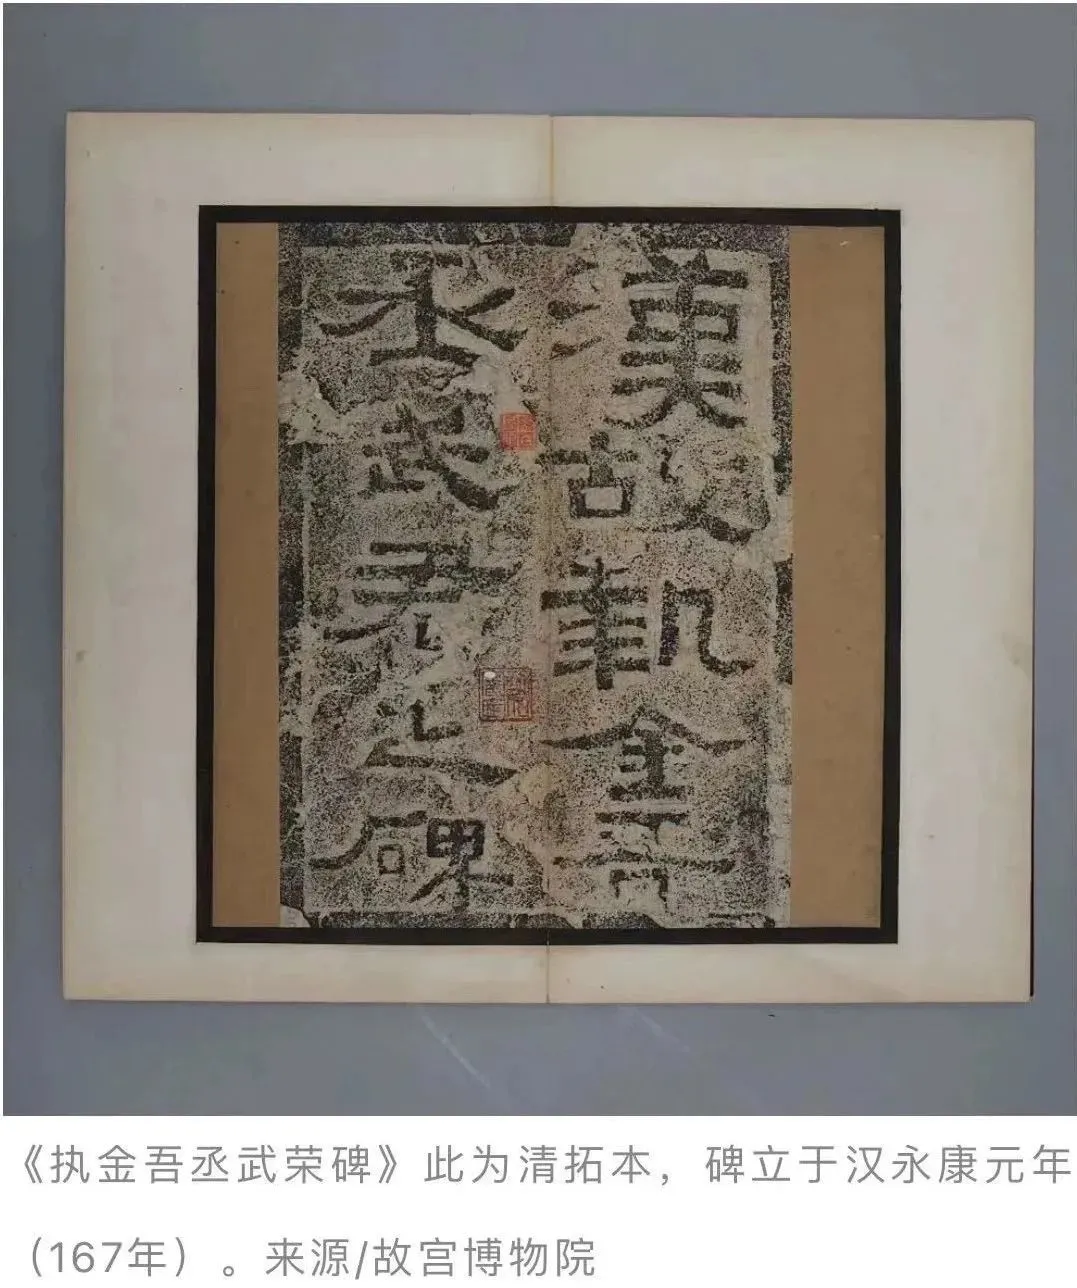 漢故執金吾
丞武君之碑
《执金吾丞武荣碑》此为清拓本，碑立于汉永康元年
（167年）。来源/故宫博物院